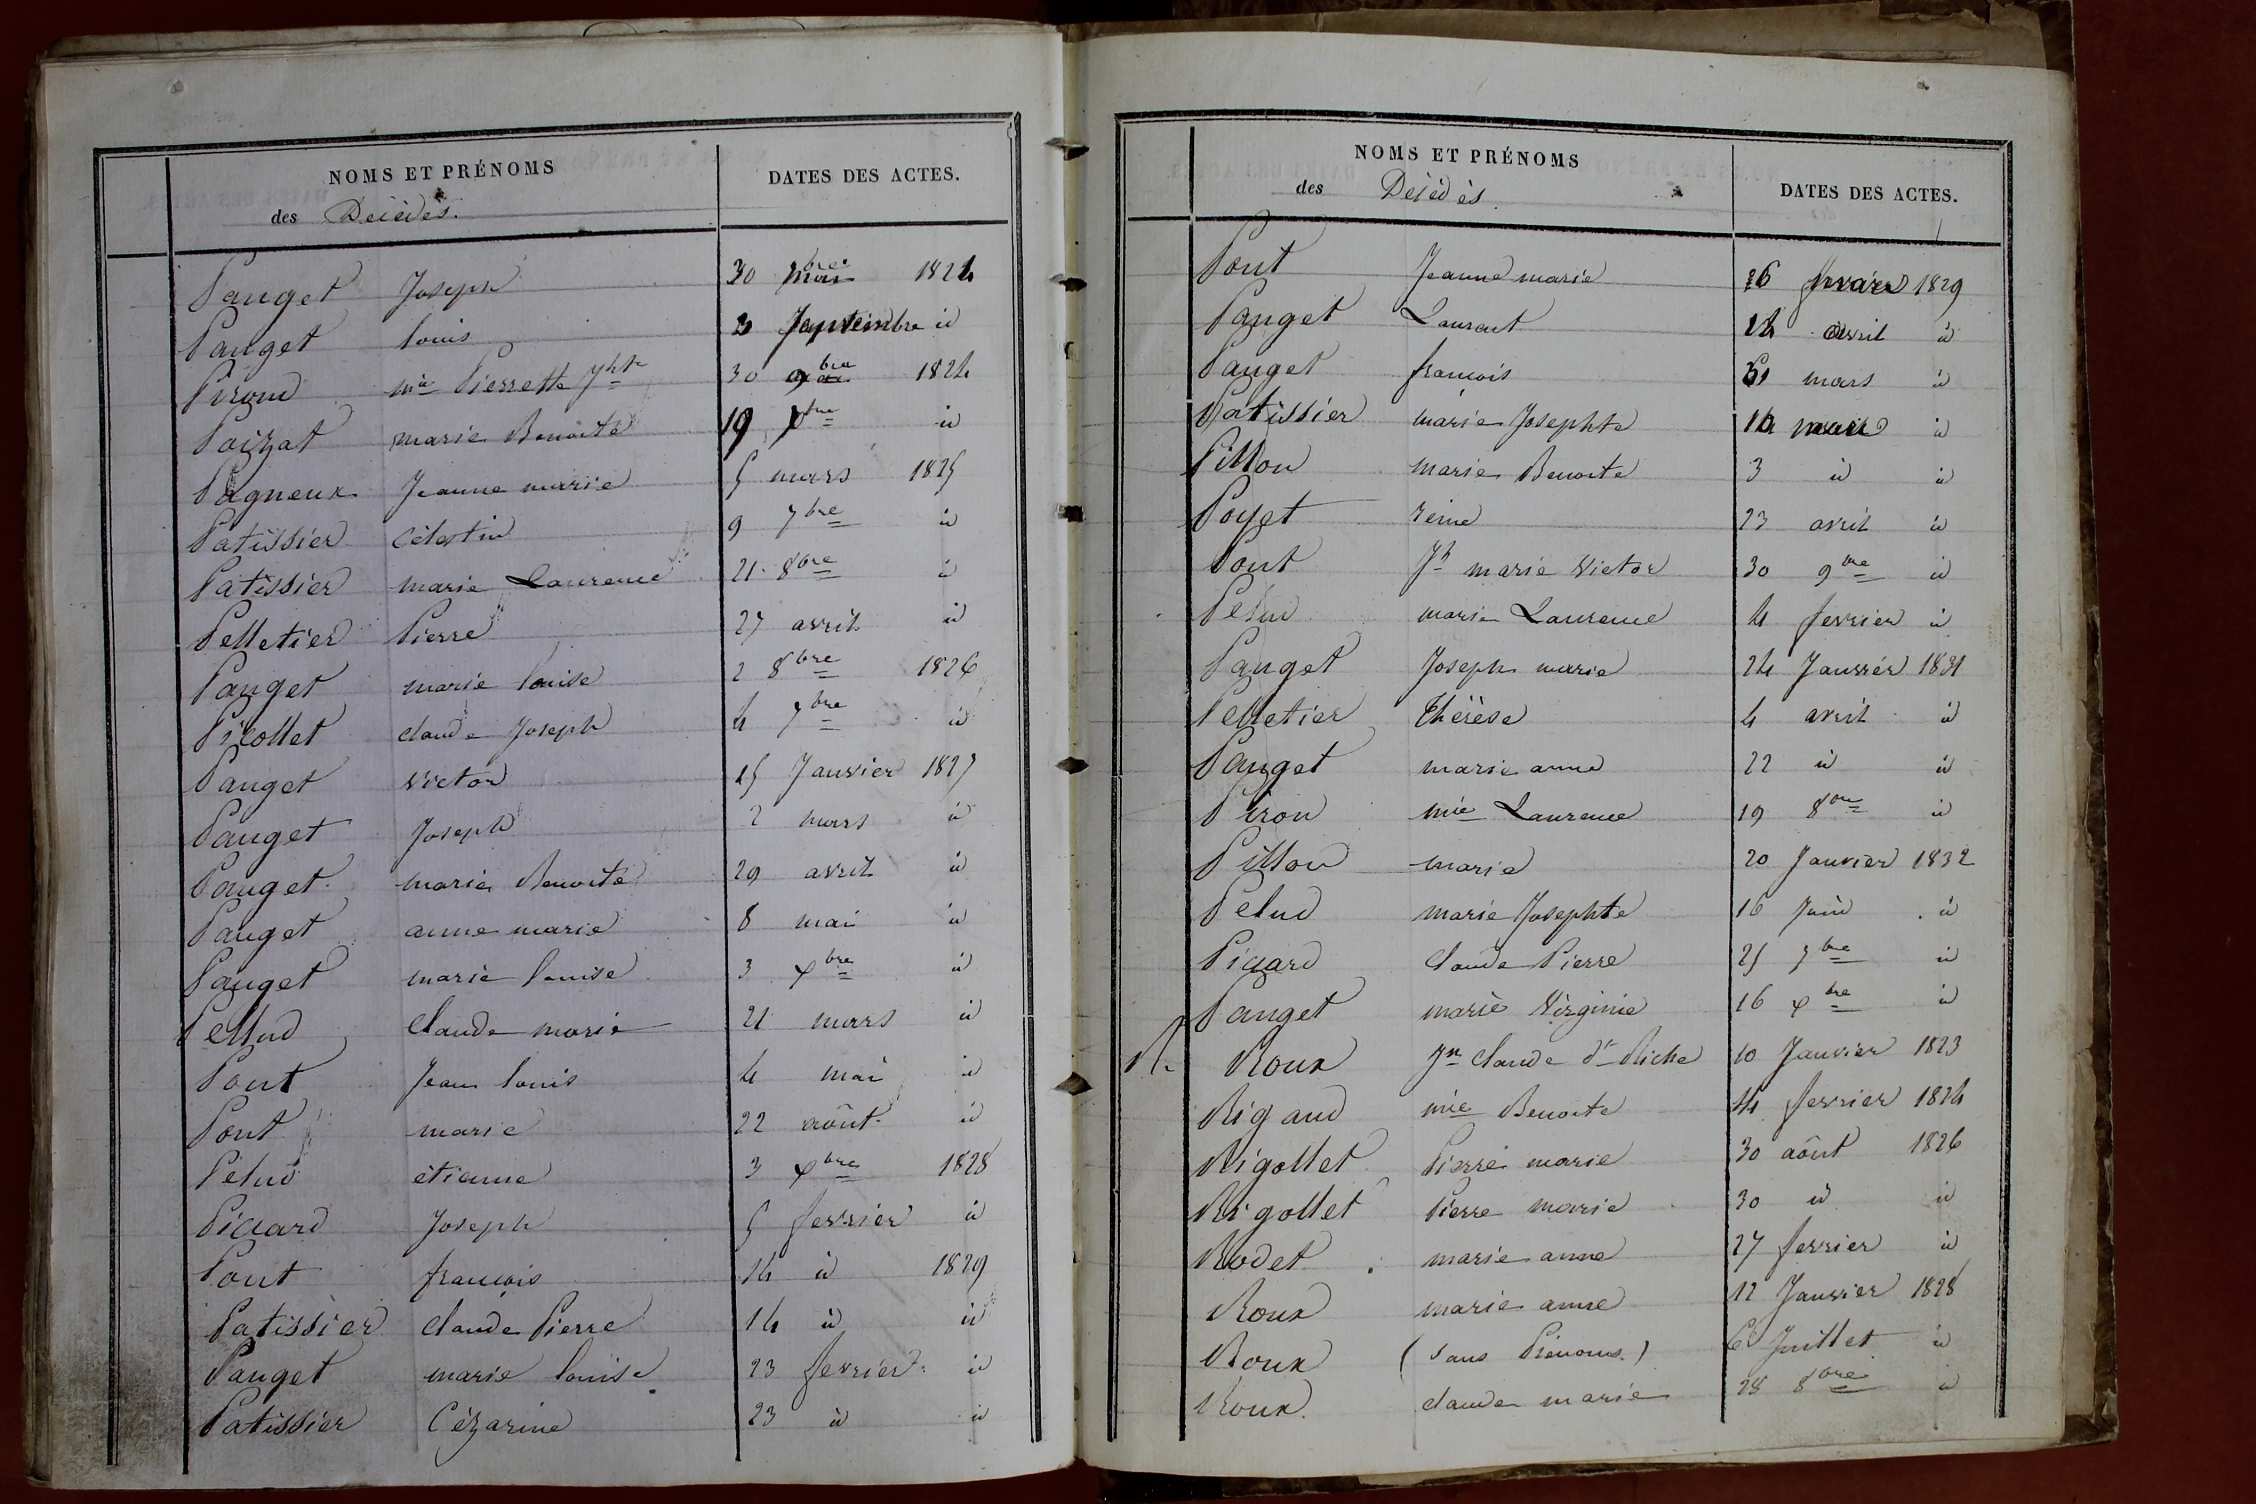 NOMS ET PRÉNOMS
des Décédés.
DATES DES ACTES.
Panget Joseph 30 9bre 1824
Panget louis 3 Septembre id
Piroud mie Pierrette Jhte 30 9bre 1824
Poizat marie Benoite 19 xbre id
Pagneux Jeanne marie 5 mars 1825
Patissier Célestin 9 7bre id
Patissier marie Laurence 21 8bre id
Pelletier Pierre 27 avril id
Panget marie louise 2 8bre 1826
Picollet claude Joseph 4 7bre id
Panget victor 15 Janvier 1827
Panget Joseph 2 mars id
Panget marie Benoite 29 avril id
Panget anne marie 8 mai id
Panget marie louise 3 xbre id
Pellud Claude marie 21 mars id
Pont Jean louis 4 mai id
Pont marie 22 août id
Pelud étienne 3 xbre 1828
Picard Joseph 5 fevrier id
Pont françois 14 id 1829
Patissier Claude Pierre 14 id id
Panget marie louise 23 fevrier id
Patissier Cézarine 23 id id
NOMS ET PRÉNOMS
des Décédés.
DATES DES ACTES.
Pont Jeanne marie 26 1829
Panget Laurent 14 avril id
Panget françois mars id
Patissier marie Josephte id
Pillon marie Benoite 3 id id
Poyet reine 23 avril id
Pont Jh marie victor 30 9bre id
Pelud marie Laurence 4 fevrier id
Panget Joseph marie 24 Janvier 1831
Pelletier Thérèse 4 avril id
Panget marie anne 22 id id
Piron mie Laurence 19 8bre id
Pillon marie 20 Janvier 1832
Pelud marie Josephte 16 Juin id
Picard Claude Pierre 25 7bre id
Panget marie Virginie 16 xbre id
R. Roux Jn Claude dt Riche 10 Janvier 1823
Rigaud mie Benoite 14 fevrier 1824
Rigollet Pierre marie 30 août 1826
Rigollet Pierre marie 30 id id
Rodet marie anne 27 fevrier id
Roux marie anne 12 Janvier 1828
Roux (sans Prénoms.) 6 Juillet id
Roux claude marie 28 8bre id